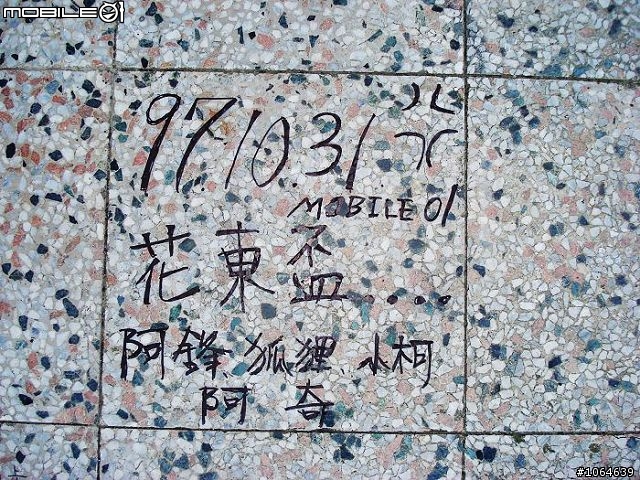 MOBILE01
97.10.31
MOBILE 01
花東盃....
阿鋒、狐狸、小柯
阿奇
#1064639